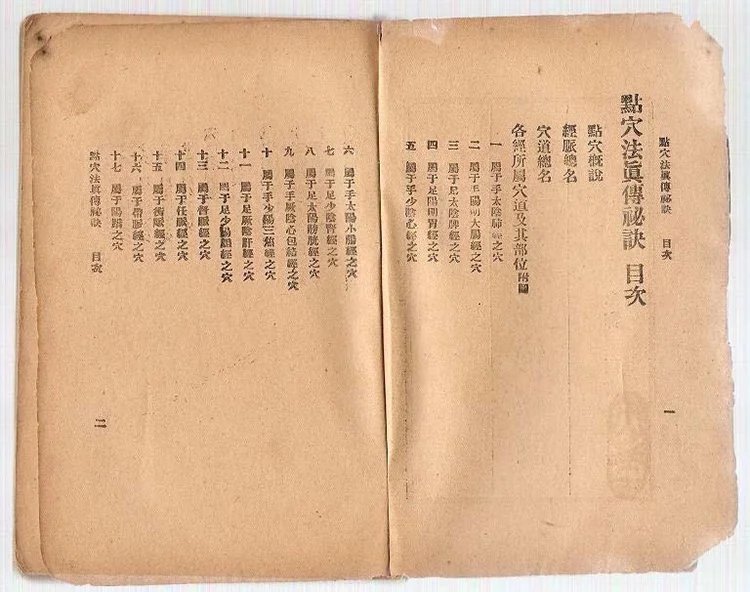 點穴法眞傳祕訣　目次
一
點穴法眞傳祕訣　目次
點穴概說
經脈總名
穴道總名
各經所屬穴道及其部位附圖
一　屬于手太陰肺經之穴
二　屬于手陽明大腸經之穴
三　屬于足太陰脾經之穴
四　屬于足陽明胃經之穴
五　屬于手少陰心經之穴
六　屬于手太陽小腸經之穴
七　屬于足少陰腎經之穴
八　屬于足太陽膀胱經之穴
九　屬于手厥陰心包絡經之穴
十　屬于手少陽三焦經之穴
十一　屬于足厥陰肝經之穴
十二　屬于足少陽膽經之穴
十三　屬于督脈經之穴
十四　屬于任脈經之穴
十五　屬于衝脈經之穴
十六　屬于帶脈經之穴
十七　屬于陽蹻之穴
點穴法眞傳祕訣　目次
二